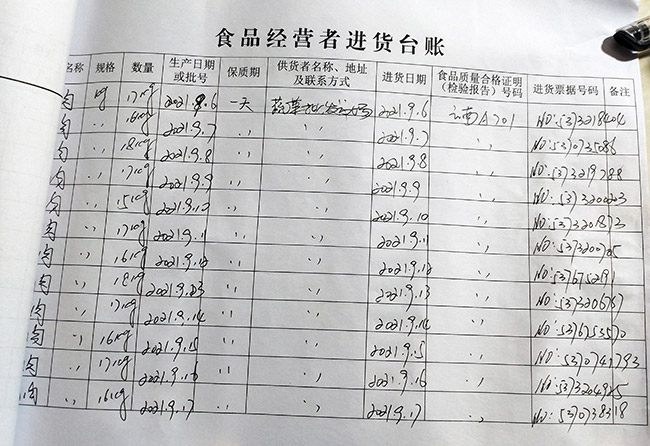 食品经营者进货台账
名称 规格 数量 生产日期或批号 保质期 供货者名称、地址及联系方式 进货日期 食品质量合格证明(检验报告)号码 进货票据号码 备注
肉 kg 17kg 2021.9.6 一天 2021.9.6 云南A701 NO:5373218404
肉 〃 18kg 2021.9.7 〃 〃 2021.9.7 〃 NO:5370735086
肉 〃 18kg 2021.9.8 〃 〃 2021.9.8 〃 NO:5373219788
肉 〃 17kg 2021.9.9 〃 〃 2021.9.9 〃 NO:5373200203
肉 〃 15kg 2021.9.10 〃 〃 2021.9.10 〃 NO:5373201873
肉 〃 17kg 2021.9.11 〃 〃 2021.9.11 〃
肉 〃 16kg 2021.9.12 〃 〃 2021.9.12 〃
肉 〃 18kg 2021.9.13 〃 〃 2021.9.13 〃 NO:5373206767
肉 〃 17kg 2021.9.14 〃 〃 2021.9.14 〃 NO:5376753570
肉 〃 16kg 2021.9.15 〃 〃 2021.9.15 〃 NO:5370741793
肉 〃 17kg 2021.9.16 〃 〃 2021.9.16 〃
肉 〃 16kg 2021.9.17 〃 〃 2021.9.17 〃 NO:5370738318